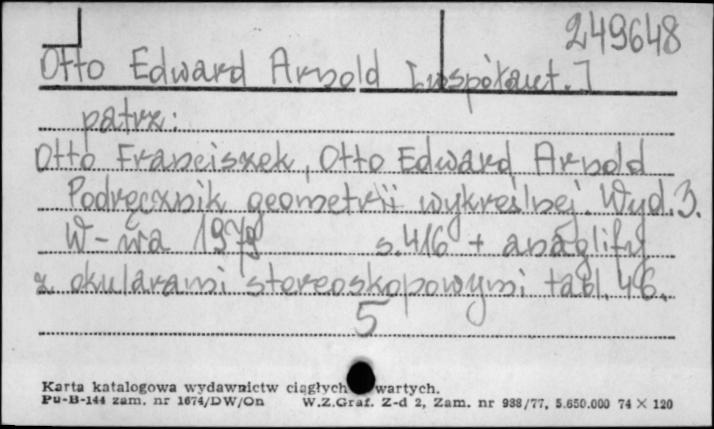 249648
Otto Edward Arnold [współaut.]
patrz:
Otto Franciszek, Otto Edward Arnold
Podręcznik geometrii wykreślnej. Wyd. 3.
W-wa 1979 s. 416 + anaglify
z okularami stereoskopowymi tabl. 46.
5
Karta katalogowa wydawnictw ciągłych wartych.
Pu-B-144 zam. nr 1674/DW/On W.Z.Graf. Z-d 2, Zam. nr 938/77, 5.650.000 74 × 120